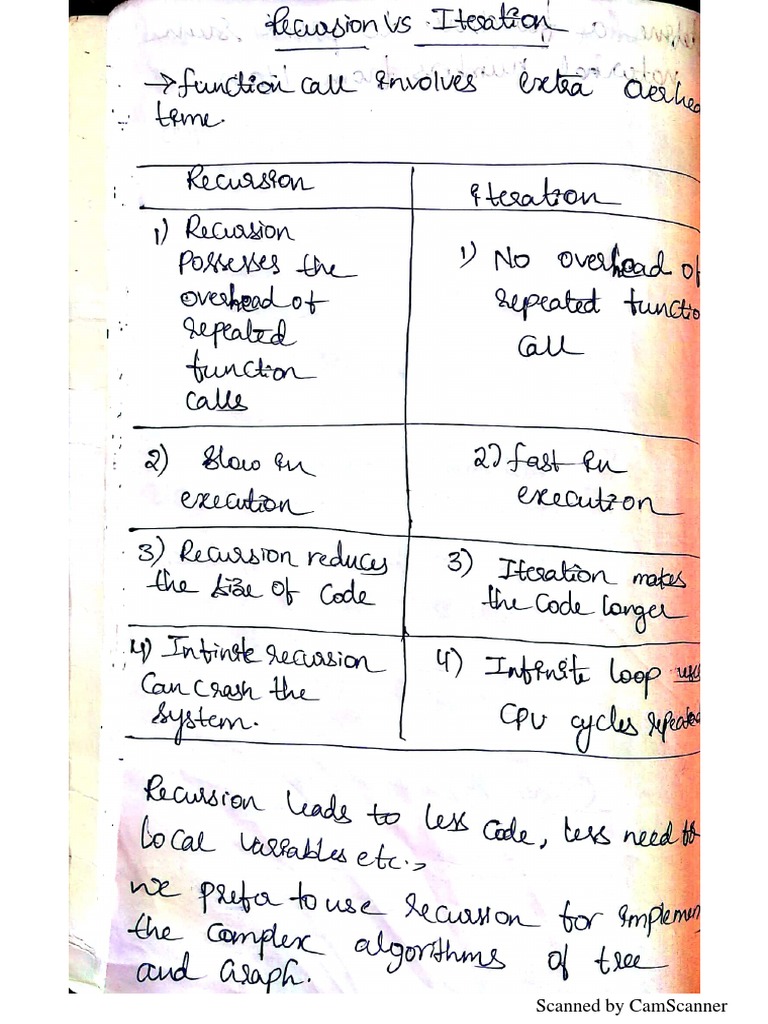 Recursion Vs Iteration
→ function call involves extra overhea
time.
Recursion
Iteration
1) Recursion
possesses the
overhead of
repeated
function
calls
1) No overhead of
repeated functio
call
2) Slow in
execution
2) fast in
execution
3) Recursion reduces
the size of code
3) Iteration makes
the code longer
4) Infinite recursion
can crash the
system.
4) Infinite loop
CPU cycles repeated
Recursion leads to less code, less need to
local variables etc.,
we prefer to use recursion for implemen
the complex algorithms of tree
and Graph.
Scanned by CamScanner